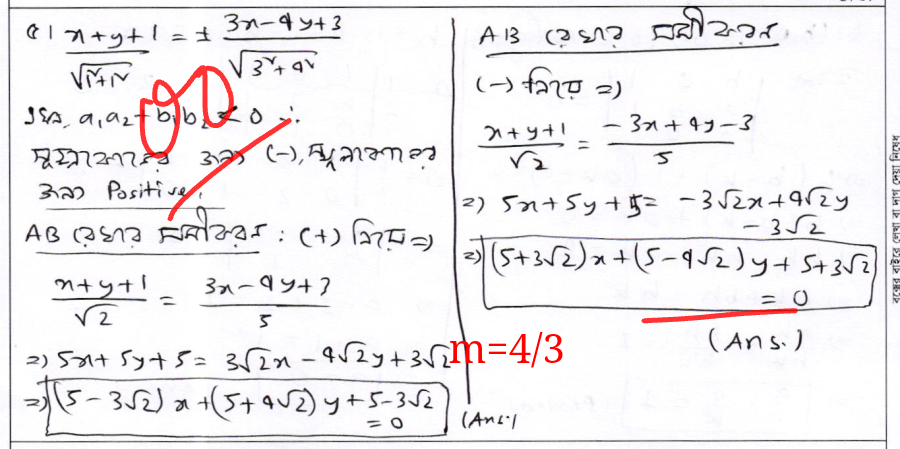 ৫। x+y+1 = ± 3x-4y+3
√1²+1² √3²+4²
এখন, a₁a₂+b₁b₂ < 0 ∴
সূক্ষ্মকোণের জন্য (-), স্থূলকোণের
জন্য Positive.
AB রেখার সমীকরণ : (+) নিয়ে ⇒
x+y+1 / √2 = 3x-4y+3 / 5
⇒ 5x+5y+5 = 3√2x-4√2y+3√2
⇒ (5-3√2)x+(5+4√2)y+5-3√2
= 0
(Ans:)
AB রেখার সমীকরণ
(-) নিয়ে ⇒
x+y+1 / √2 = -3x+4y-3 / 5
⇒ 5x+5y+5 = -3√2x+4√2y
-3√2
⇒ (5+3√2)x+(5-4√2)y+5+3√2
= 0
(Ans:)
m=4/3
বক্সের বাইরে লেখা বা দাগ দেয়া নিষেধ